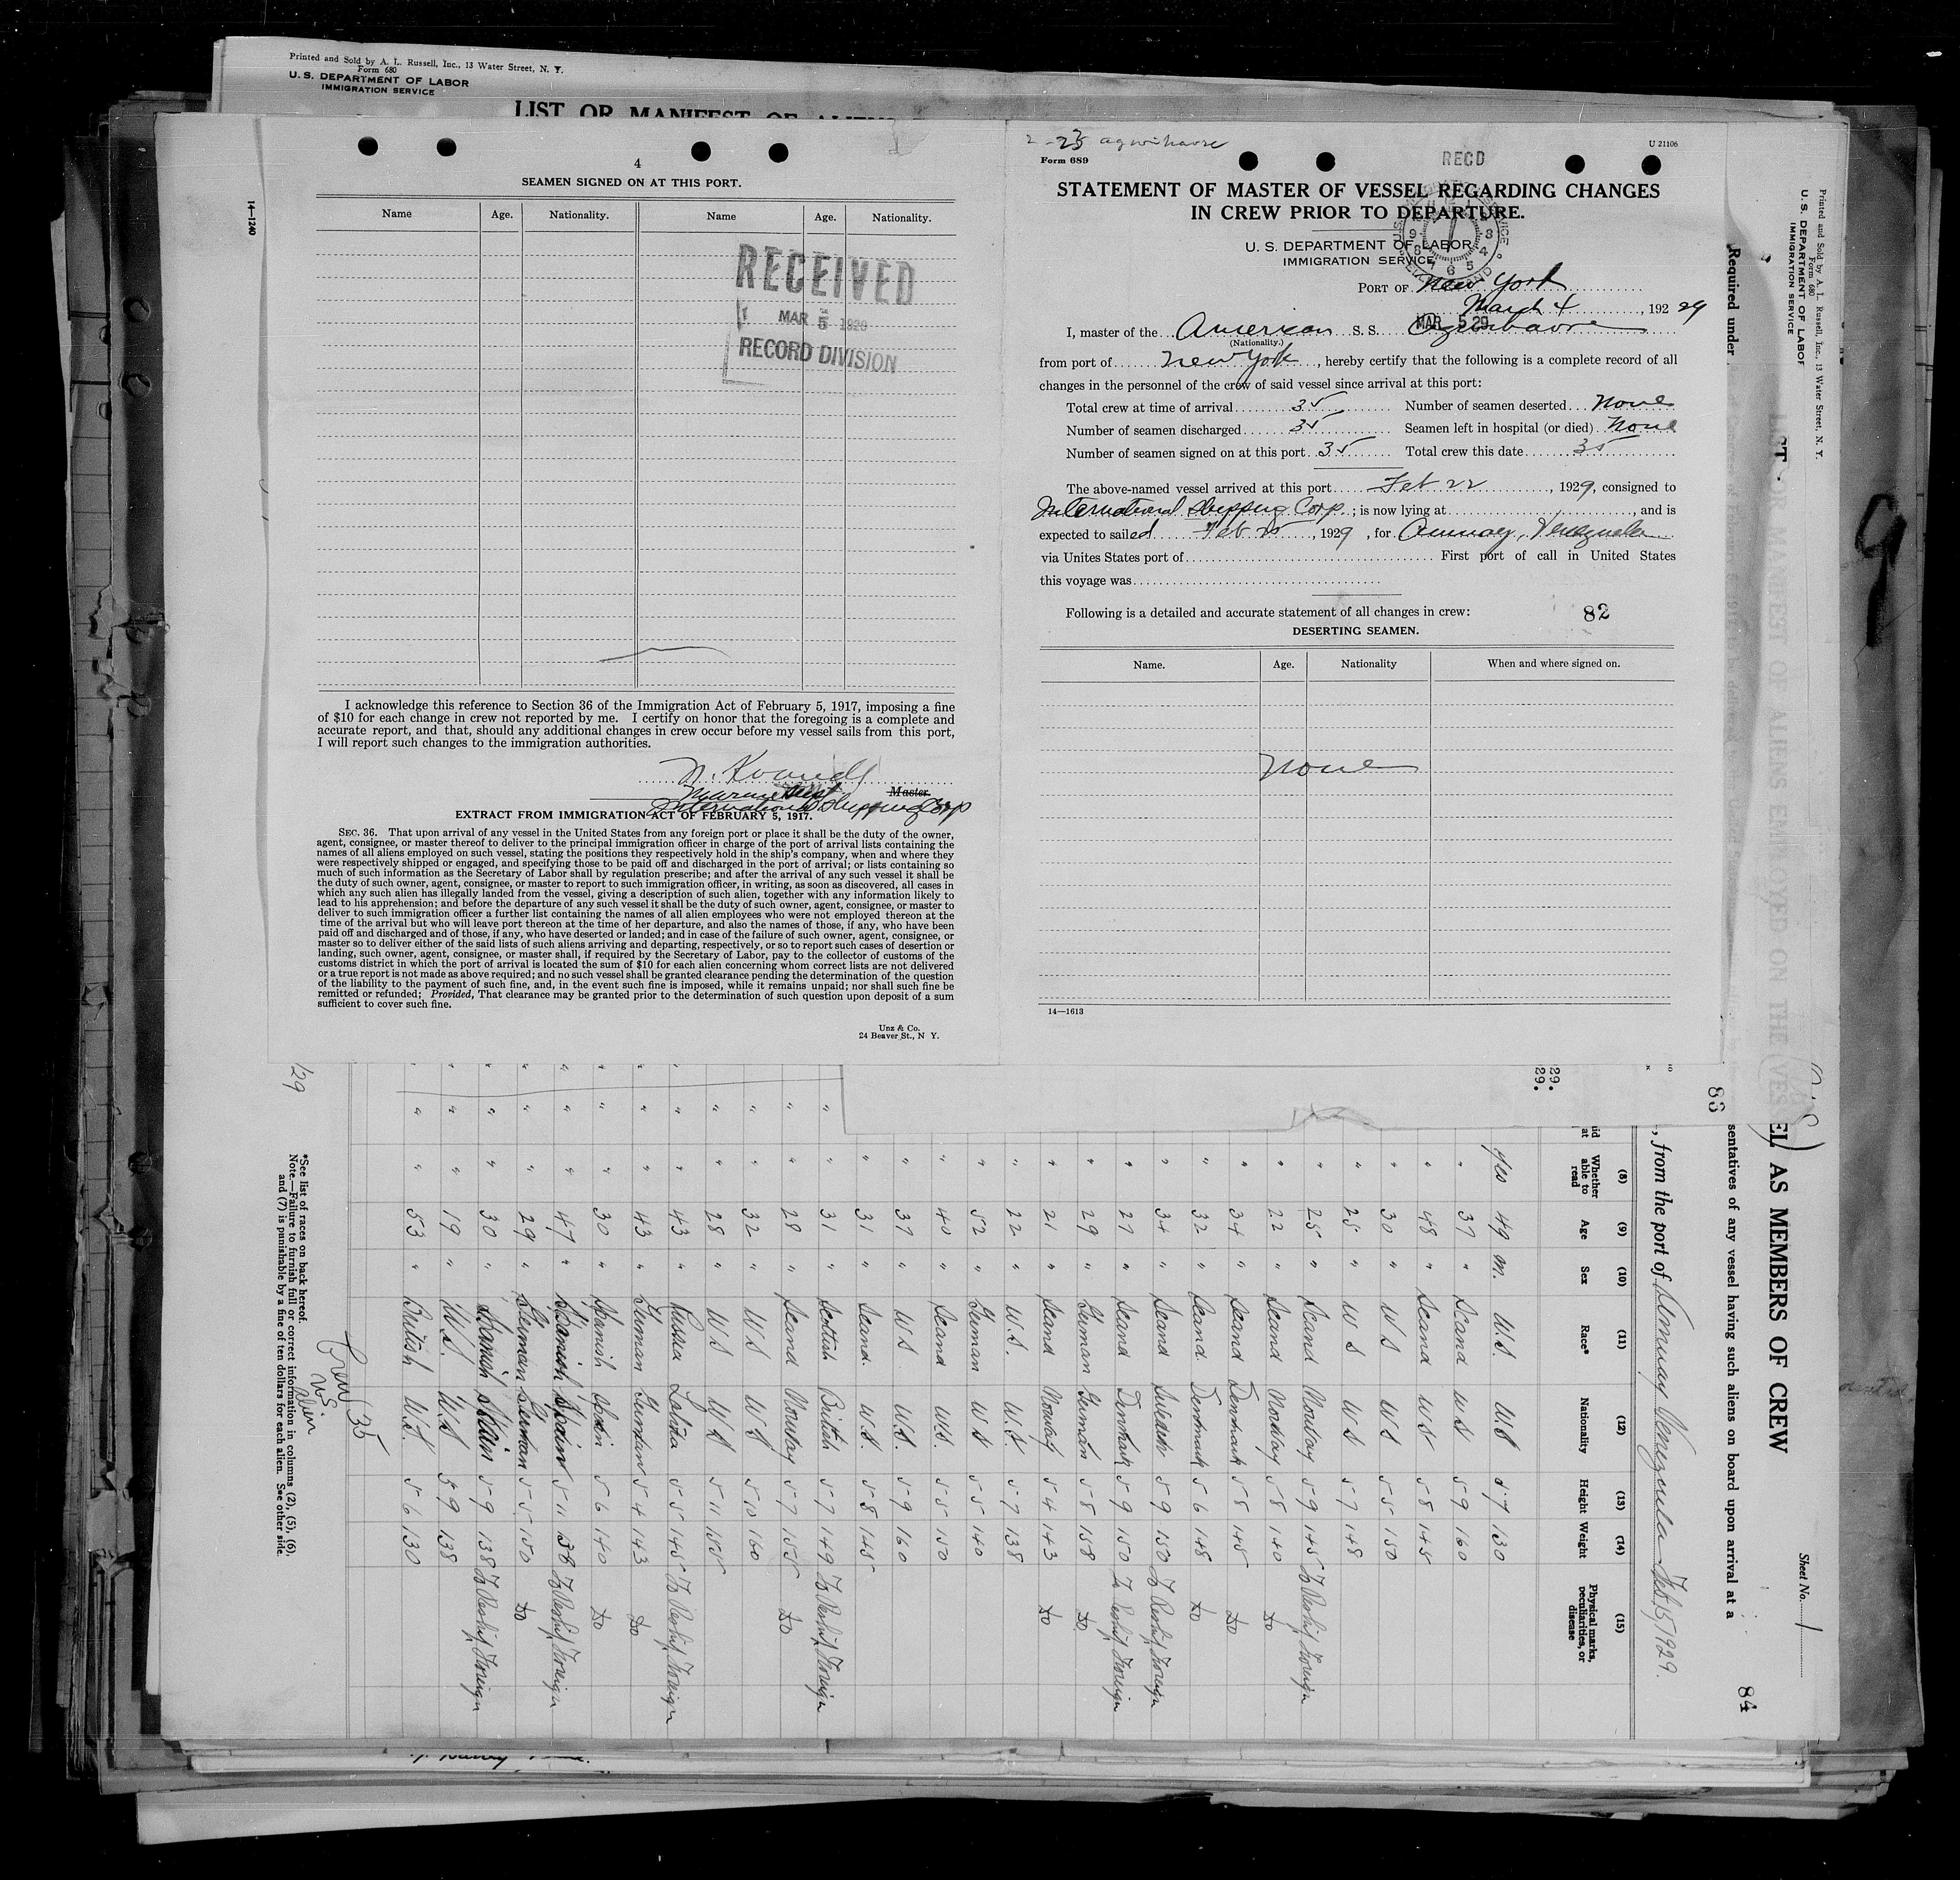 Printed and Sold by A. L. Russell, Inc., 13 Water Street, N. Y.
Form 680
U. S. DEPARTMENT OF LABOR
IMMIGRATION SERVICE
LIST OR MANIFEST OF ALIENS
14—1240
4
SEAMEN SIGNED ON AT THIS PORT.
Name Age. Nationality. Name Age. Nationality.
RECEIVED
MAR 5 1929
RECORD DIVISION
I acknowledge this reference to Section 36 of the Immigration Act of February 5, 1917, imposing a fine
of $10 for each change in crew not reported by me. I certify on honor that the foregoing is a complete and
accurate report, and that, should any additional changes in crew occur before my vessel sails from this port,
I will report such changes to the immigration authorities.
Master.
International Shipping Corp
EXTRACT FROM IMMIGRATION ACT OF FEBRUARY 5, 1917.
SEC. 36. That upon arrival of any vessel in the United States from any foreign port or place it shall be the duty of the owner,
agent, consignee, or master thereof to deliver to the principal immigration officer in charge of the port of arrival lists containing the
names of all aliens employed on such vessel, stating the positions they respectively hold in the ship's company, when and where they
were respectively shipped or engaged, and specifying those to be paid off and discharged in the port of arrival; or lists containing so
much of such information as the Secretary of Labor shall by regulation prescribe; and after the arrival of any such vessel it shall be
the duty of such owner, agent, consignee, or master to report to such immigration officer, in writing, as soon as discovered, all cases in
which any such alien has illegally landed from the vessel, giving a description of such alien, together with any information likely to
lead to his apprehension; and before the departure of any such vessel it shall be the duty of such owner, agent, consignee, or master to
deliver to such immigration officer a further list containing the names of all alien employees who were not employed thereon at the
time of the arrival but who will leave port thereon at the time of her departure, and also the names of those, if any, who have been
paid off and discharged and of those, if any, who have deserted or landed; and in case of the failure of such owner, agent, consignee, or
master so to deliver either of the said lists of such aliens arriving and departing, respectively, or so to report such cases of desertion or
landing, such owner, agent, consignee, or master shall, if required by the Secretary of Labor, pay to the collector of customs of the
customs district in which the port of arrival is located the sum of $10 for each alien concerning whom correct lists are not delivered
or a true report is not made as above required; and no such vessel shall be granted clearance pending the determination of the question
of the liability to the payment of such fine, and, in the event such fine is imposed, while it remains unpaid; nor shall such fine be
remitted or refunded; Provided, That clearance may be granted prior to the determination of such question upon deposit of a sum
sufficient to cover such fine.
Unz & Co.
24 Beaver St., N Y.
2-23 agwihavre
Form 689
U 21106
RECD
STATEMENT OF MASTER OF VESSEL REGARDING CHANGES
IN CREW PRIOR TO DEPARTURE.
U. S. DEPARTMENT OF LABOR
IMMIGRATION SERVICE
PORT OF New York
March 4, 192 29
MAR 5 29
I, master of the American S. S. Agwihavre
(Nationality.)
from port of New York, hereby certify that the following is a complete record of all
changes in the personnel of the crew of said vessel since arrival at this port:
Total crew at time of arrival 35 Number of seamen deserted None
Number of seamen discharged 35 Seamen left in hospital (or died) None
Number of seamen signed on at this port 35 Total crew this date 35
The above-named vessel arrived at this port Feb 22, 1929, consigned to
International Shipping Corp; is now lying at, and is
expected to sailed Feb 25, 1929, for Amuay, Venezuela
via Unites States port of First port of call in United States
this voyage was
Following is a detailed and accurate statement of all changes in crew: 82
DESERTING SEAMEN.
Name. Age. Nationality When and where signed on.
None
14—1613
Printed and Sold by A. L. Russell, Inc., 13 Water Street, N. Y.
Form 680
U. S. DEPARTMENT OF LABOR
IMMIGRATION SERVICE
Required under
LIST OR MANIFEST OF ALIENS EMPLOYED ON THE VESSEL AS MEMBERS OF CREW
Sheet No. 1
83
84
sentatives of any vessel having such aliens on board upon arrival at a
, from the port of Amuay Venezuela Feb. 15, 1929.
29.
29.
(8) Whether able to read (9) Age (10) Sex (11) Race* (12) Nationality (13) Height (14) Weight (15) Physical marks, peculiarities, or disease
Yes 49 m. U.S. U.S 5 7 130
" 37 " Scand U S 5 9 160
" 48 " Scand U S 5 8 145
" 30 " U S U S 5 5 150
" 25 " U S U S 5 7 148
" 25 " Scand Norway 5 9 145 To Reship Foreign
" 22 " Scand Norway 5 8 140 Do
" 34 " Scand Denmark 5 8 145 Do
" 32 " Scand. Denmark 5 6 148 Do
" 34 " Scand Sweden 5 9 150 To Reship Foreign
" 27 " Scand Denmark 5 9 150 To Reship Foreign
" 29 " German German 5 8 158 Do
" 21 " Scand Norway 5 4 143 Do
" 22 " U.S. U.S. 5 7 138
" 52 " German U S 5 5 140
" 40 " Scand U.S. 5 5 150
" 37 " U S U.S. 5 9 160
" 31 " Scand. U.S. 5 8 145
" 31 " Scottish British 5 7 149 To Reship Foreign
" 28 " Scand Norway 5 7 155 Do
" 32 " U S U S 5 10 160
" 28 " U S U S 5 11 155
" 43 " Russia Latvia 5 5 145 To Reship Foreign
" 43 " German German 5 4 143 Do
" 30 " Spanish Spain 5 6 140 Do
" 47 " Spanish Spain 5 11 138 To Reship Foreign
" 29 " German German 5 5 150 Do
" 30 " Spanish Spain 5 9 138 To Reship Foreign
" 19 " U.S. U.S 5 9 138
" 53 " British U.S. 5 6 130
Crew 35
US
alien
/29
*See list of races on back hereof.
Note.—Failure to furnish full or correct information in columns (2), (5), (6),
and (7) is punishable by a fine of ten dollars for each alien. See other side.
9